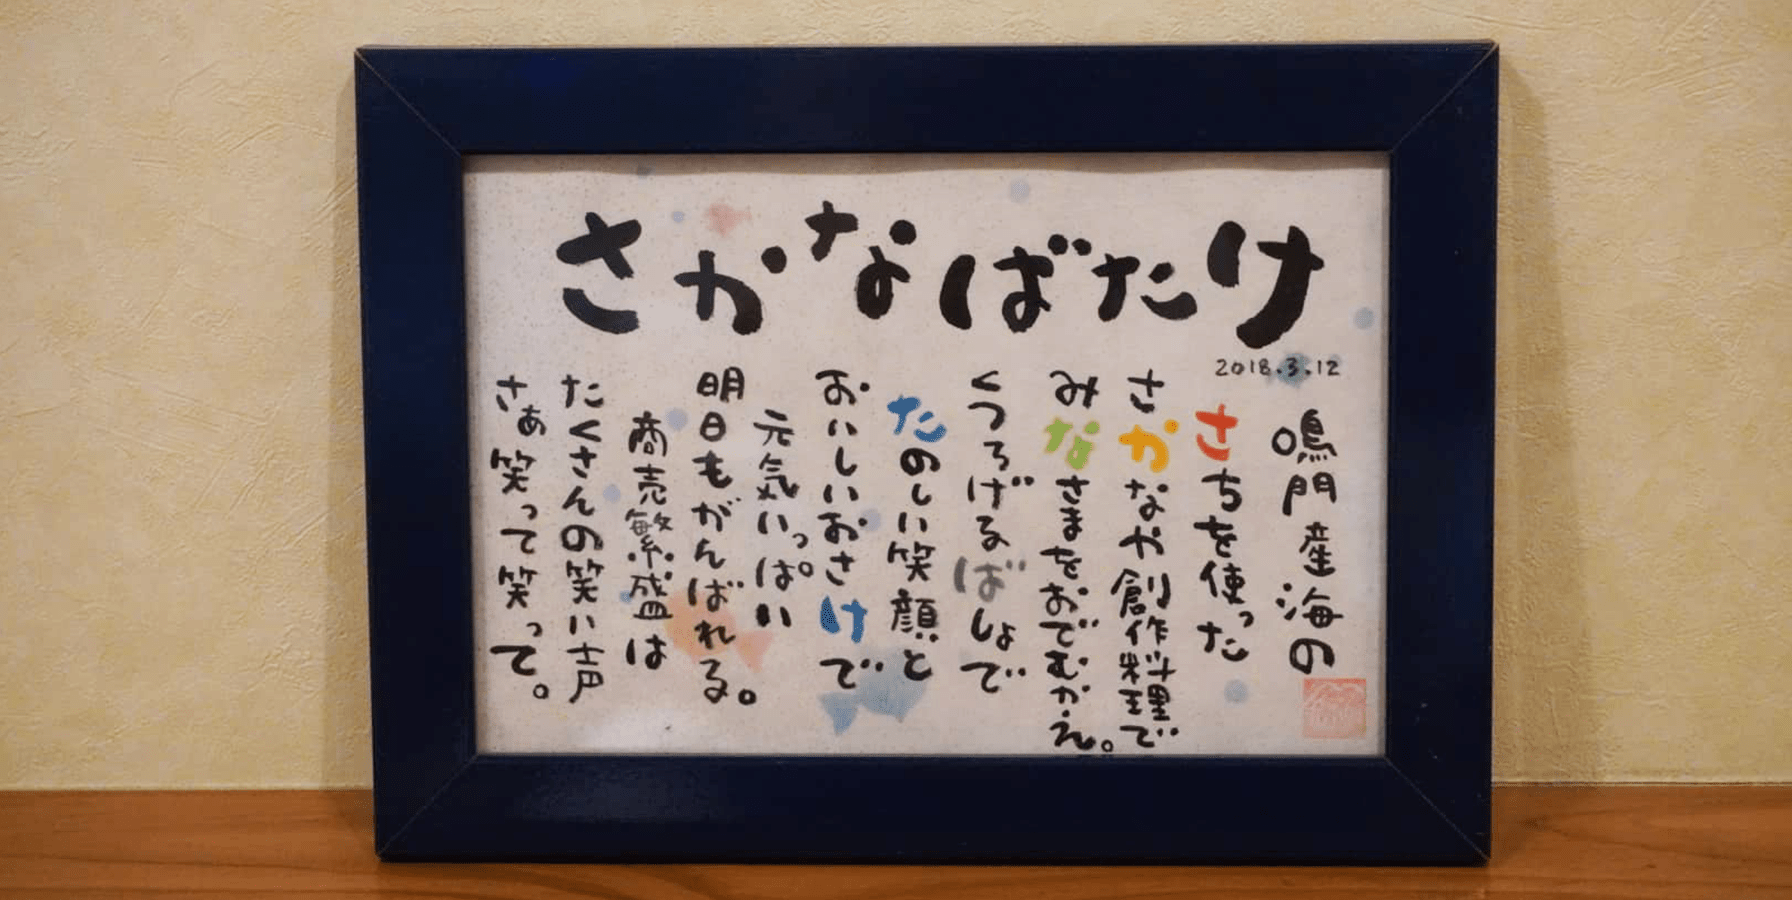 さかなばたけ
2018.3.12
鳴門産海の
さちを使った
さかなや創作料理で
みなさまをおでむかえ。
くつろげるばしょで
たのしい笑顔と
おいしいおさけで
元気いっぱい
明日もがんばれる。
商売繁盛は
たくさんの笑い声
さぁ笑って笑って。